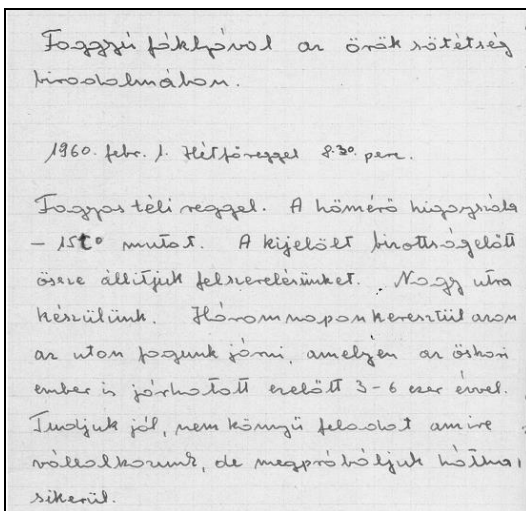 Faggyú fáklyával az örök sötétség
birodalmában.
1960. febr. 1. Hétfőreggel 8.30. perc.
Fagyos téli reggel. A hőmérő higanyszála
– 15 C° mutat. A kijelölt bizottságelőtt
össze állítjuk felszerelésünket. Nagy utra
készülünk. Háromnaponkeresztül azon
az uton fogunk járni, amelyen az őskori
ember is járhatott ezelőtt 3-6 ezer évvel.
Tudjuk jól, nem könnyü feladat amire
vállalkozunk, de megpróbáljuk hátha
sikerül.